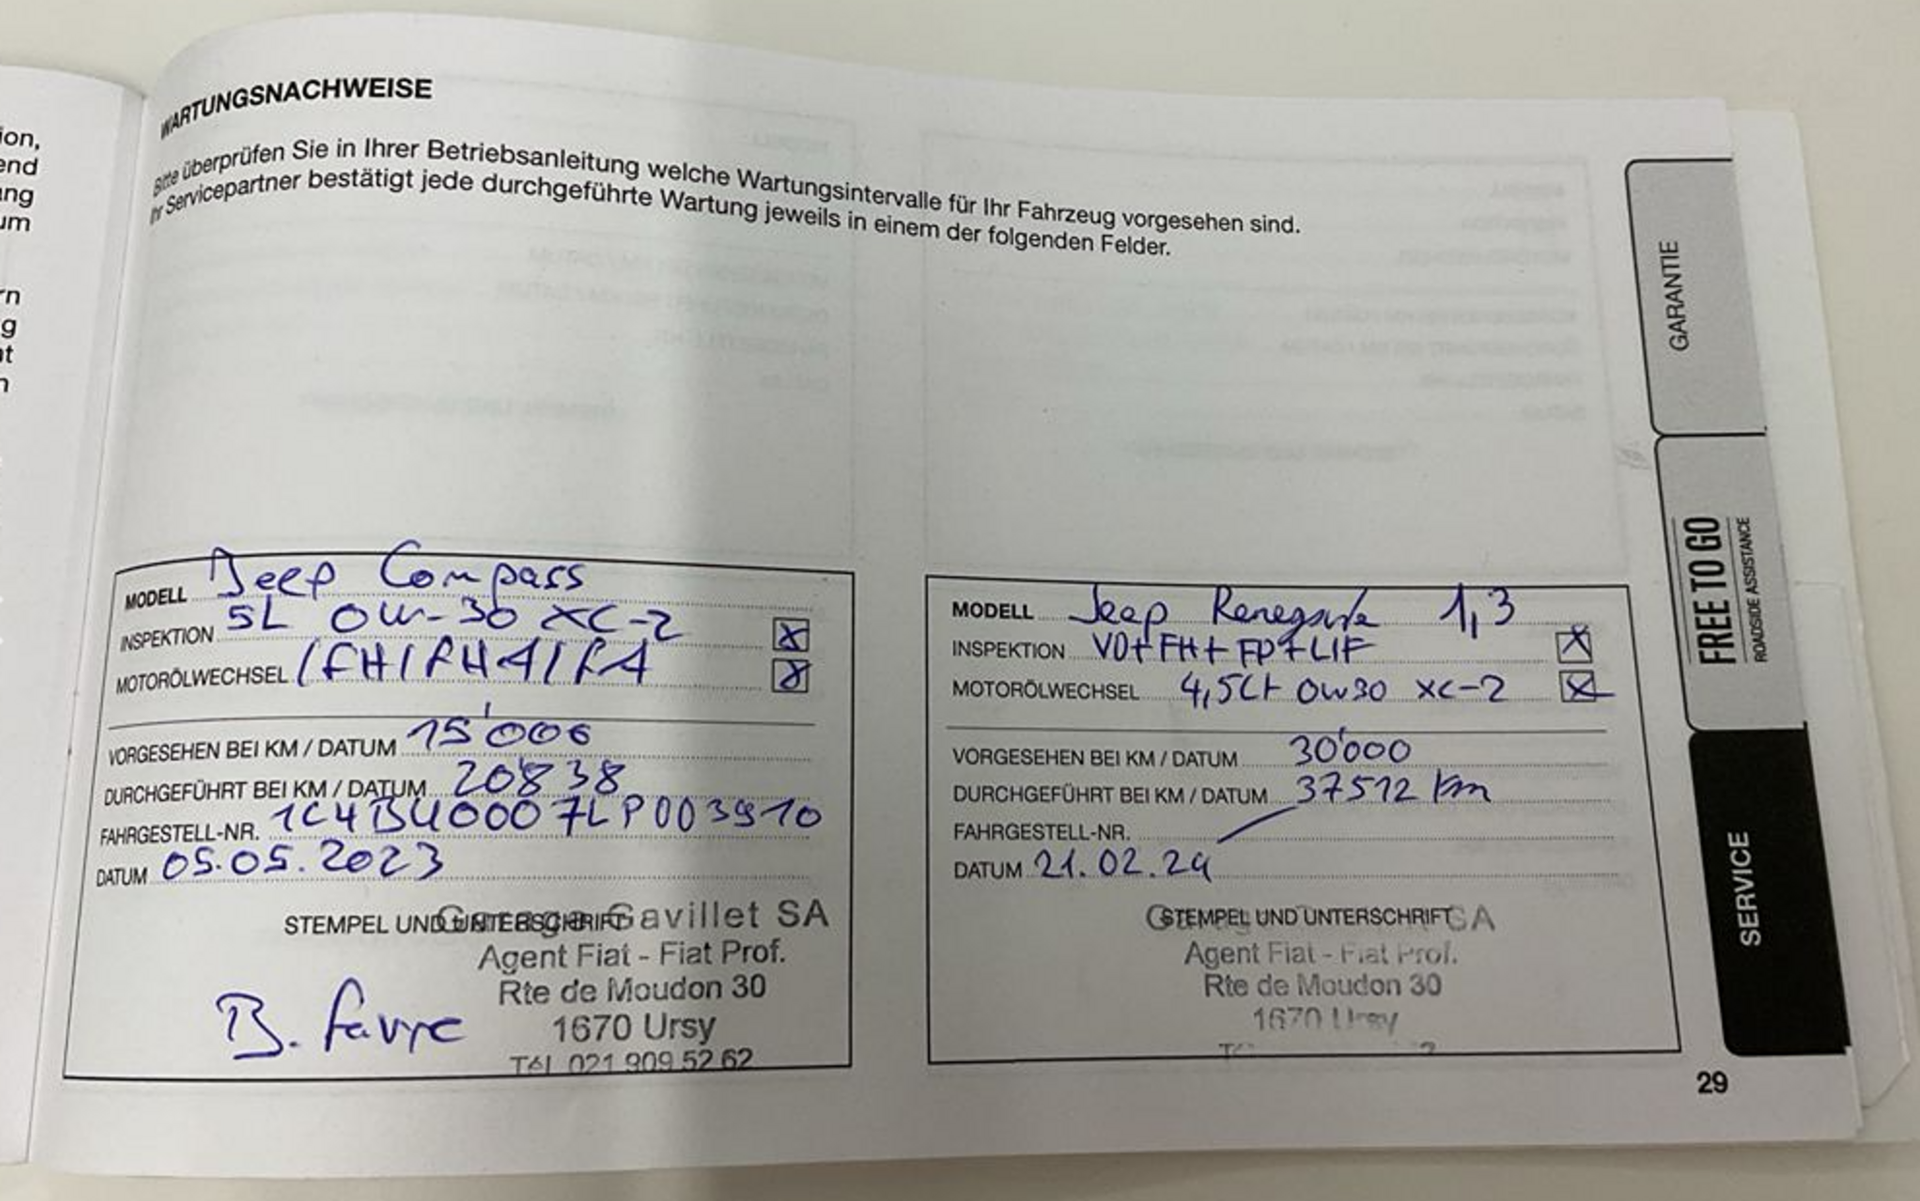 ion,
end
ang
um
rn
g
nt
n
WARTUNGSNACHWEISE
Bitte überprüfen Sie in Ihrer Betriebsanleitung welche Wartungsintervalle für Ihr Fahrzeug vorgesehen sind.
Ihr Servicepartner bestätigt jede durchgeführte Wartung jeweils in einem der folgenden Felder.
MODELL Jeep Compass
INSPEKTION 5L 0W-30 XC-2 X
MOTORÖLWECHSEL X
VORGESEHEN BEI KM / DATUM 15'000
DURCHGEFÜHRT BEI KM / DATUM 20'838
FAHRGESTELL-NR. 1C4BU0007LP003910
DATUM 05.05.2023
STEMPEL UND UNTERSCHRIFT
Garage Gavillet SA
Agent Fiat - Fiat Prof.
Rte de Moudon 30
1670 Ursy
Tél 021 909 52 62
B. Favre
MODELL Jeep Renegade 1,3
INSPEKTION VD+FH+FP+LIF X
MOTORÖLWECHSEL 4,5Lt 0W30 XC-2 X
VORGESEHEN BEI KM / DATUM 30'000
DURCHGEFÜHRT BEI KM / DATUM 37512 km
FAHRGESTELL-NR.
DATUM 21.02.24
STEMPEL UND UNTERSCHRIFT
SA
Agent Fiat - Fiat Prof.
Rte de Moudon 30
1670 Ursy
GARANTIE
FREE TO GO
ROADSIDE ASSISTANCE
SERVICE
29